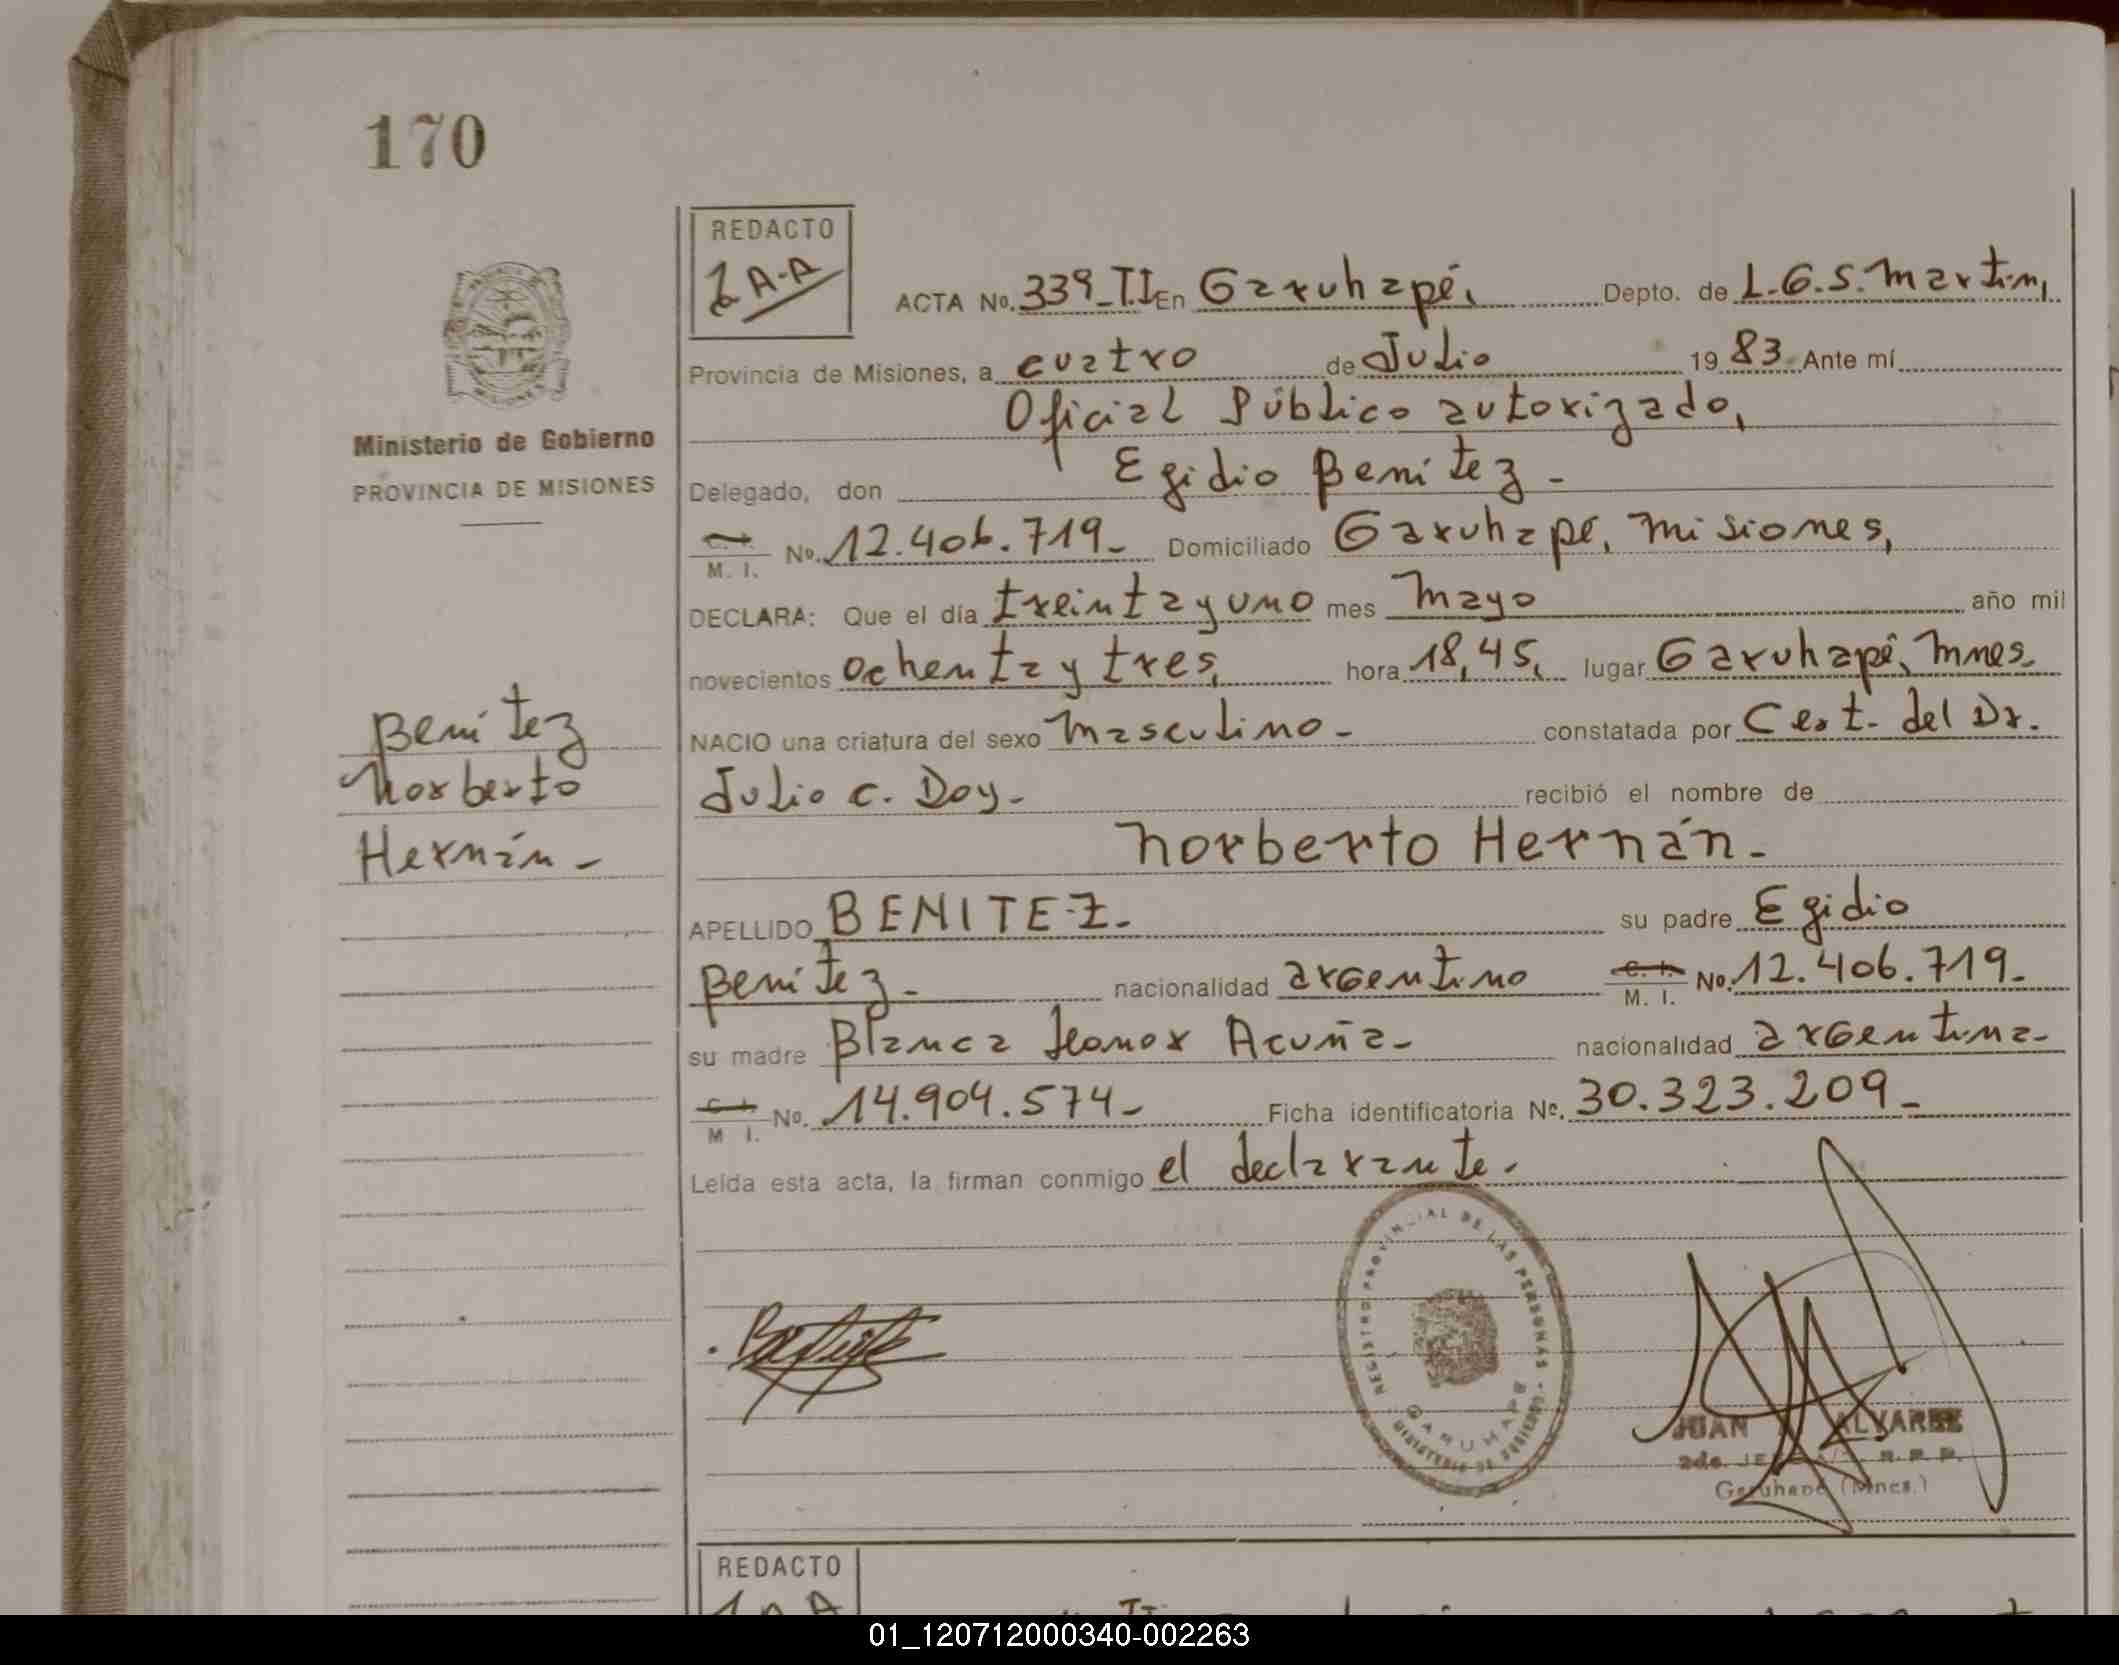 170
REDACTO
ACTA No. 339-T.I En Garuhapé, Depto. de L.G.S. Martin,
Provincia de Misiones, a cuatro de Julio 19 83. Ante mí
Oficial Público autorizado,
Ministerio de Gobierno
PROVINCIA DE MISIONES
Delegado, don Egidio Benítez -
C. I. M. I. No. 12.406.719- Domiciliado Garuhapé, Misiones,
DECLARA: Que el día treinta y uno mes Mayo año mil
novecientos ochenta y tres, hora 18,45, lugar Garuhapé, Mnes.
Benítez
Norberto
Hernán -
NACIO una criatura del sexo Masculino - constatada por Cert. del Dr.
Julio C. Doy - recibió el nombre de
Norberto Hernán -
APELLIDO BENITEZ - su padre Egidio
Benítez - nacionalidad argentino C. I. M. I. No. 12.406.719-
su madre Blanca Leonor Acuña - nacionalidad argentina -
C. I. M. I. No. 14.904.574- Ficha identificatoria Nº. 30.323.209-
Leída esta acta, la firman conmigo el declarante.
REGISTRO PROVINCIAL DE LAS PERSONAS - MINISTERIO DE GOBIERNO
GARUHAPE
JUAN ALVAREZ
2do. R.R.P.
Garuhapé (Mnes.)
REDACTO
01_120712000340-002263